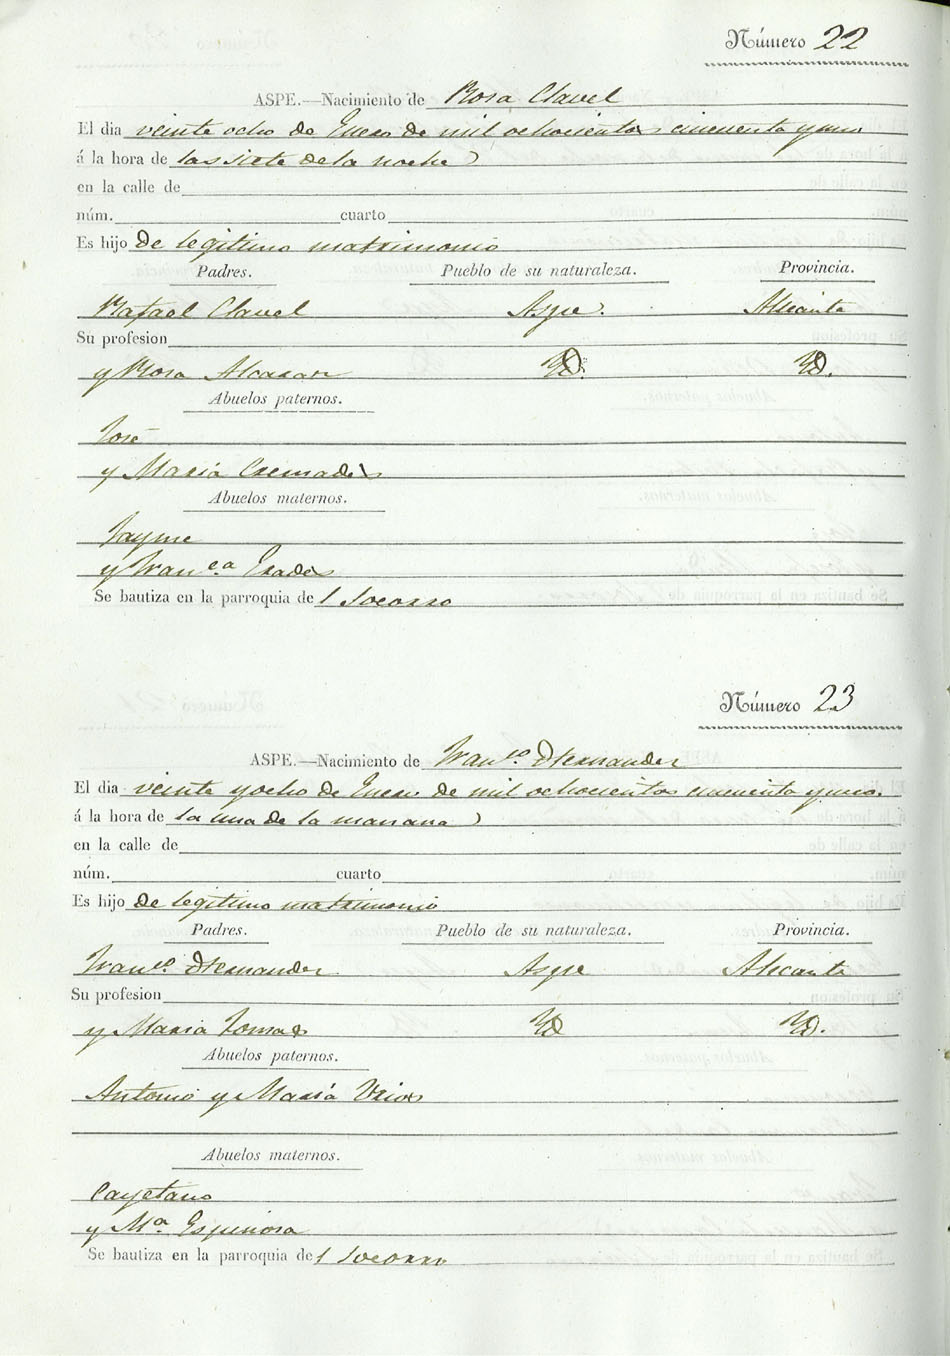 Número 22
ASPE.—Nacimiento de Rosa Clavel
El dia veinte ocho de Enero de mil ochocientos cincuenta y uno
á la hora de las siete de la noche
en la calle de
núm. cuarto
Es hijo de legitimo matrimonio
Padres. Pueblo de su naturaleza. Provincia.
Rafael Clavel Aspe. Alicante
Su profesion
y Rosa Alcaraz Yd. Yd.
Abuelos paternos.
José
y Maria Cremades
Abuelos maternos.
Jayme
y Fran.ca Prades
Se bautiza en la parroquia de l Socorro
Número 23
ASPE.—Nacimiento de Fran.co Hernandez
El dia veinte y ocho de Enero de mil ochocientos cincuenta y uno.
á la hora de la una de la mañana
en la calle de
núm. cuarto
Es hijo de legitimo matrimonio
Padres. Pueblo de su naturaleza. Provincia.
Fran.co Hernandez Aspe Alicante
Su profesion
y Maria Tomas Yd Yd.
Abuelos paternos.
Antonio y María
Abuelos maternos.
Cayetano
y Ma. Espinosa
Se bautiza en la parroquia de l Socorro